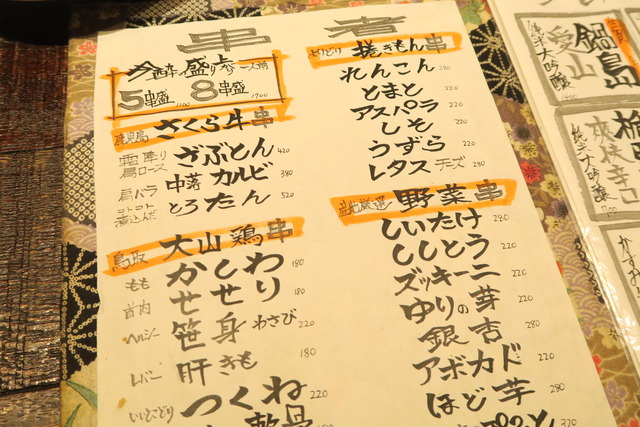 串者
盛り
5串盛 1100 8串盛 1700
鹿児島 さくら牛串
霜降り 肩ロース ざぶとん 420
肩バラ 中落カルビ 380
コトコト煮込んだ とろたん 520
鳥取 大山鶏串
もも かしわ 180
首肉 せせり 180
ヘルシー 笹身わさび 220
レバー 肝きも 180
いいとこどり つくね 220
軟骨
よりどり 捲きもん串
れんこん 280
とまと 220
アスパラ 220
しそ 220
うずら 220
レタス チーズ 280
産地厳選 野菜串
しいたけ 280
ししとう 220
ズッキーニ 220
ゆりの芽 220
銀杏 280
アボカド 220
ほど芋 280
320
鍋島
純米大吟醸
愛山
爽快辛口
純米大吟醸